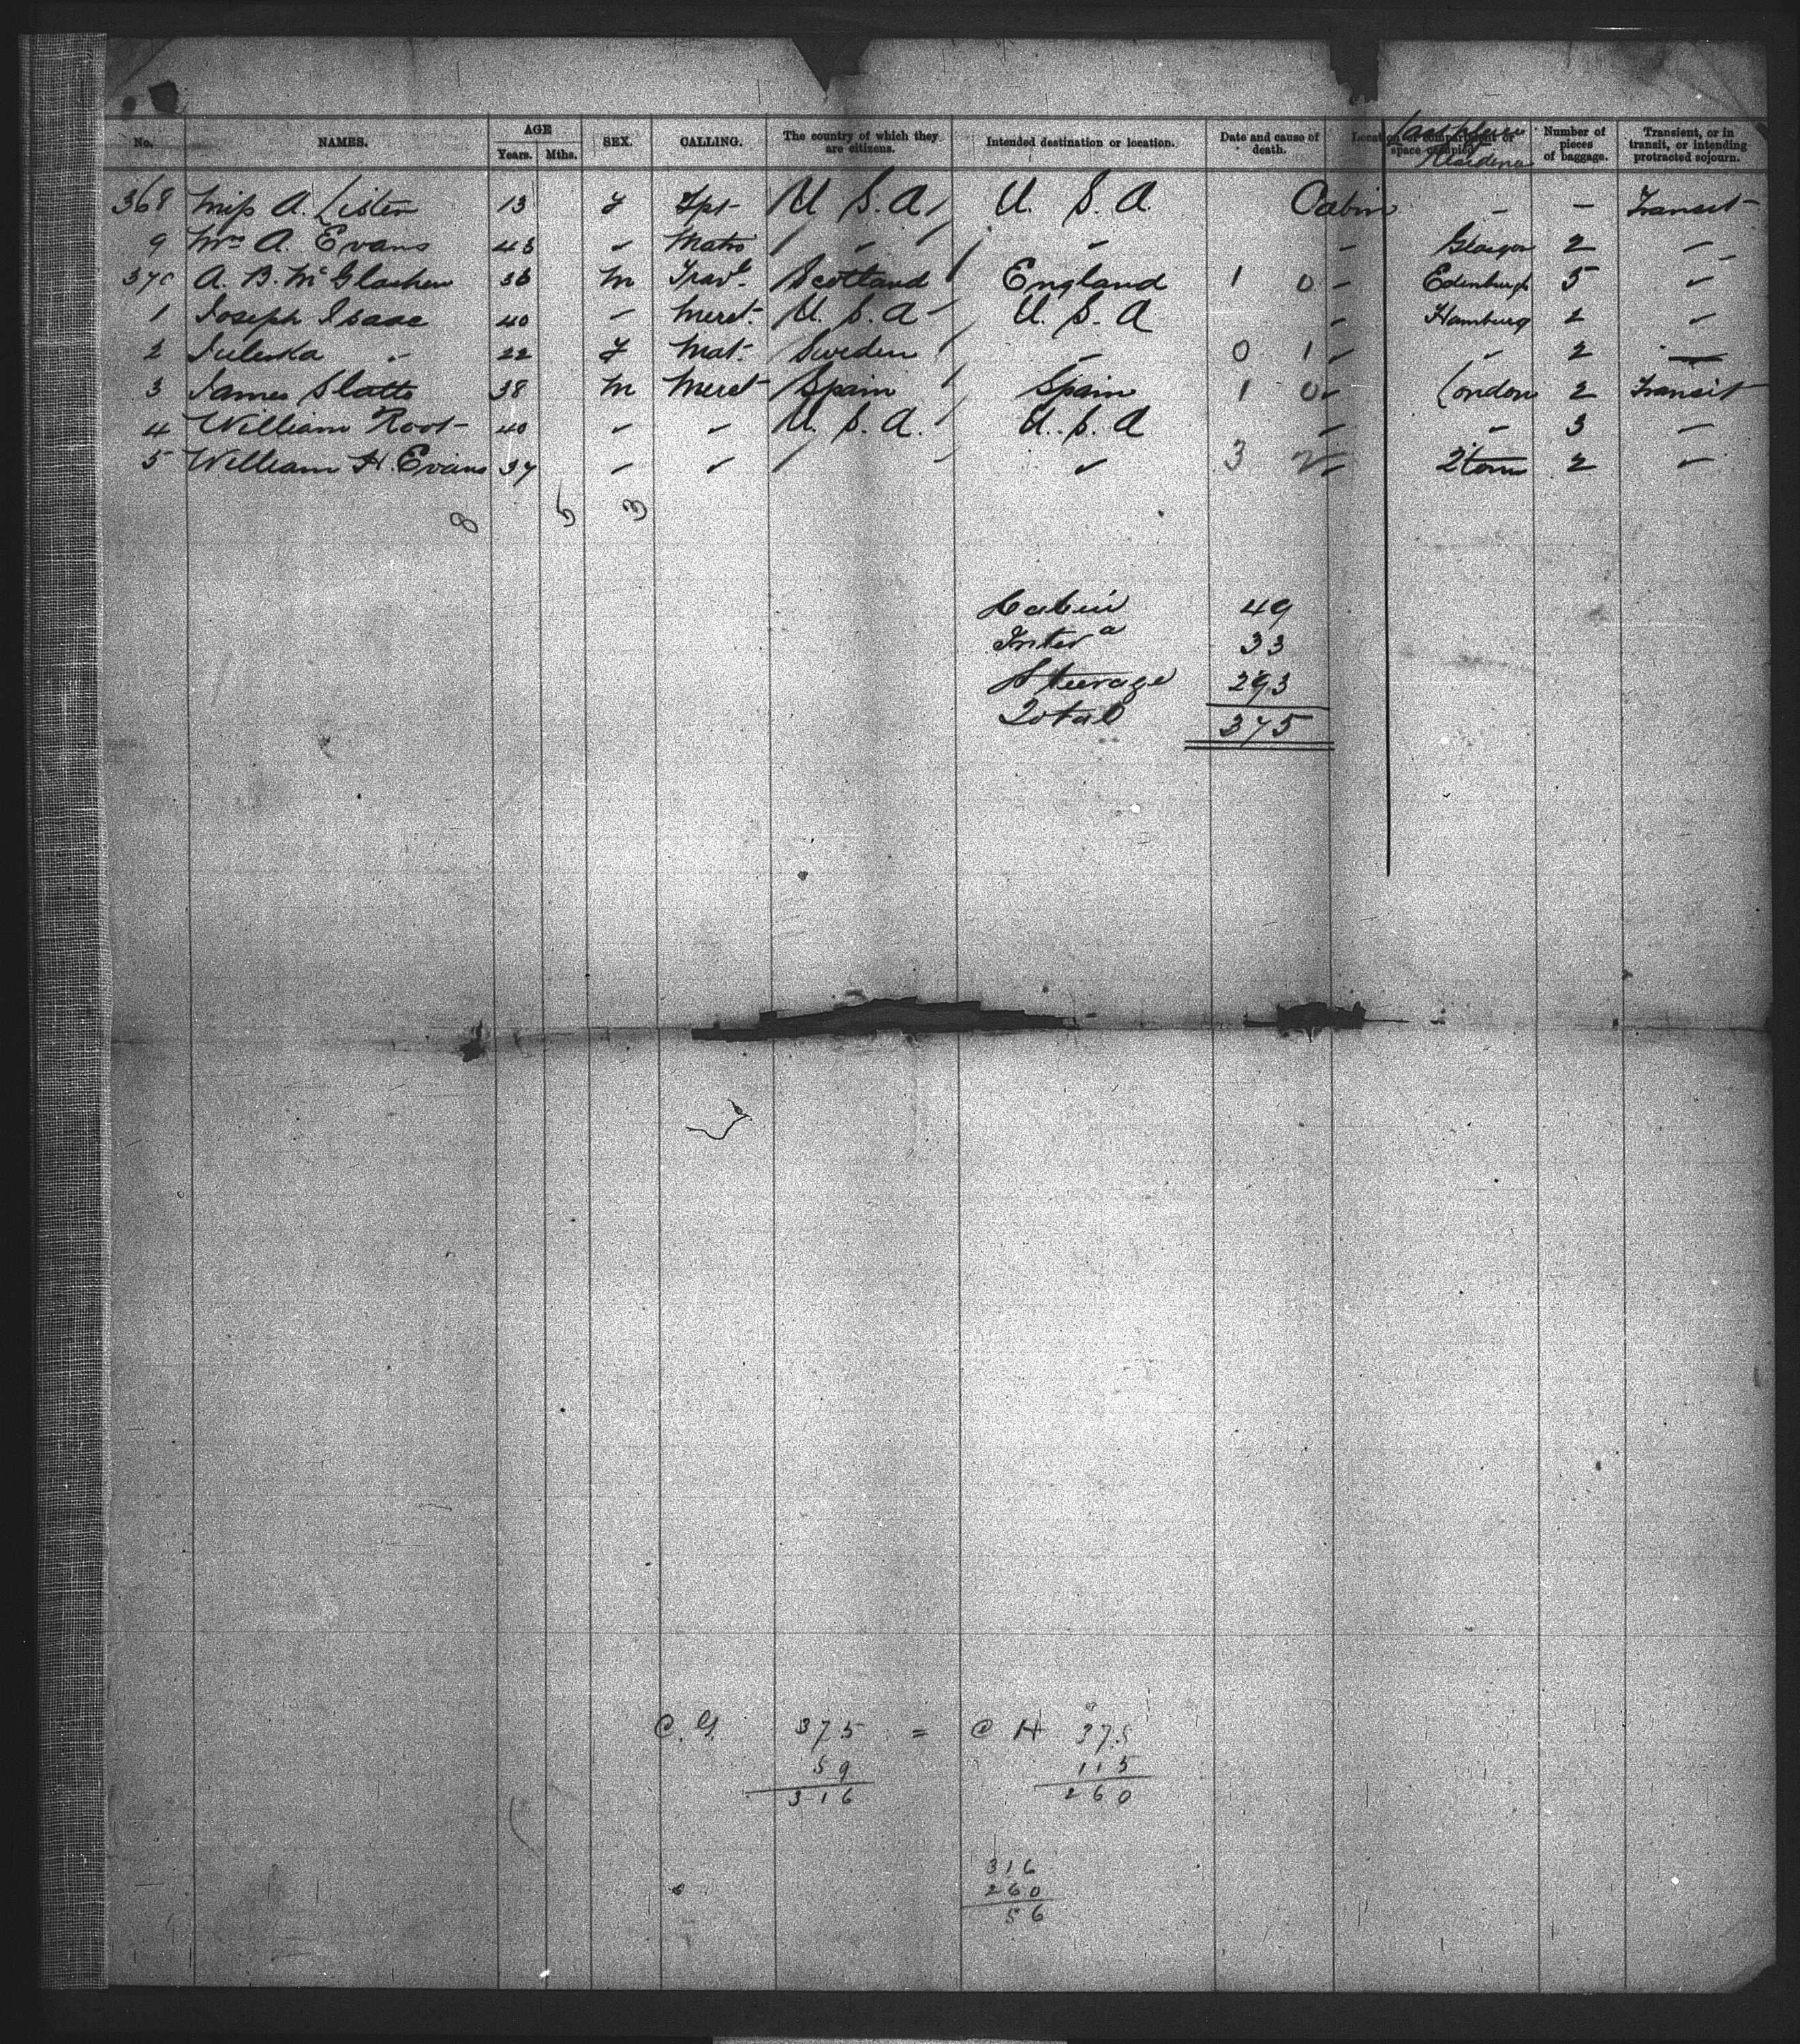 No. NAMES. AGE Years. Mths. SEX. CALLING. The country of which they are citizens. Intended destination or location. Date and cause of death. Location of compartment or space occupied Number of pieces of baggage. Transient, or in transit, or intending protracted sojourn.
368 Miss A. Lister 13 F Spr U S. A U. S. A. Cabin - - Transit
9 Mrs A. Evans 43 " Matro " " " Glasgow 2 "
370 A. B. McGlashen 36 M Travlr Scotland England 1 0 " Edinburgh 5 "
1 Joseph Isaac 40 " Merct. U. S. A U. S. A " Hamburg 2 "
2 " 22 F Mat. Sweden " 0 1 " " 2 "
3 James Slatto 38 M Merct Spain Spain 1 0 " London 2 Transit
4 William Root 40 " " U. S. A. U. S. A " " 3 "
5 William H. Evans 37 " " " " 3 2 " 2 "
8 5 3
Cabin 49
Inter a 33
Steerage 293
Total 375
C. G. 375 = C H 375
59 115
316 260
316
260
56